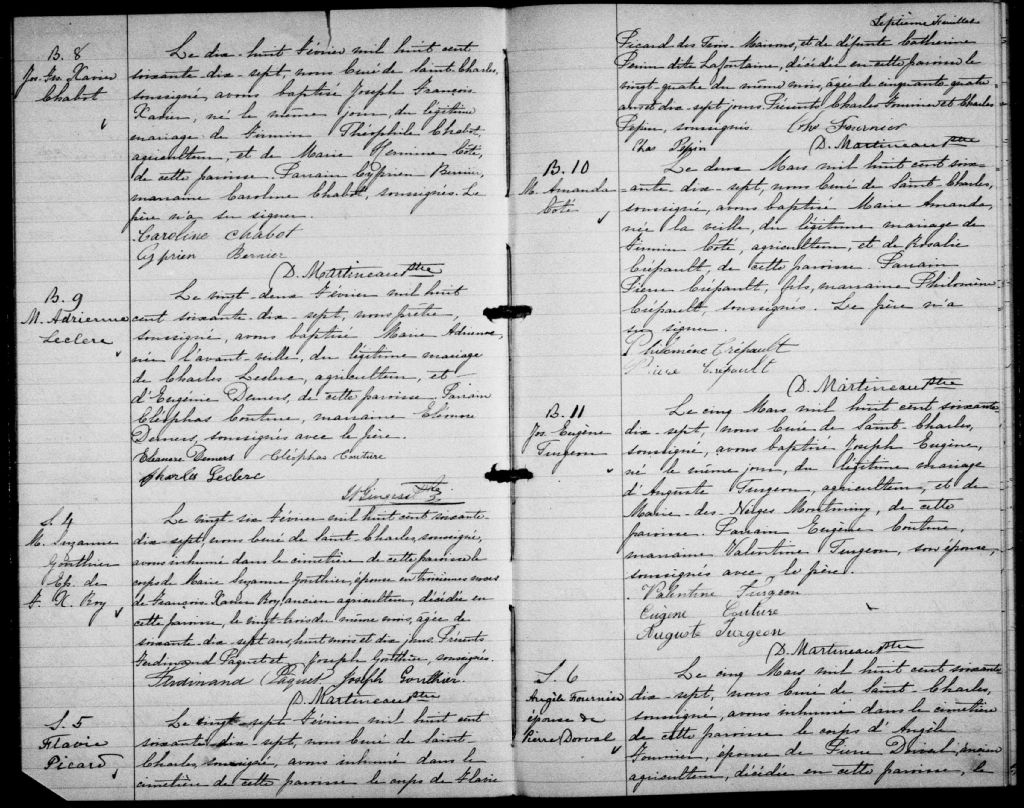 B. 8
Jos. Geo. Xavier
Chabot
Le dix-huit Février mil huit cent
soixante-dix-sept, nous Curé de Saint-Charles,
soussigné, avons baptisé Joseph François
Xavier, né le même jour, du légitime
mariage de Firmin Théophile Chabot,
agriculteur, et de Marie Hermine Côté,
de cette paroisse. Parrain Cyprien Bernier,
marraine Caroline Chabot, soussignés. Le
père n'a su signer.
Caroline Chabot
Cyprien Bernier
D. Martineau Ptre
B. 9
M. Adrienne
Leclerc
Le vingt-deux Février mil huit
cent soixante-dix-sept, nous prêtre,
soussigné, avons baptisé Marie Adrienne,
née l'avant-veille, du légitime mariage
de Charles Leclerc, agriculteur, et
d'Eugénie Demers, de cette paroisse. Parrain
Cléophas Couture, marraine Eléonore
Demers, soussignés avec le père.
Eleanore Demers Cléophas Couture
Charles Leclerc
Ptre
S. 4
M. Suzanne
Gonthier
Ep. de
F. X. Roy
Le vingt-six Février mil huit cent soixante
dix-sept, nous Curé de Saint-Charles, soussigné,
avons inhumé dans le cimetière de cette paroisse le
corps de Marie Suzanne Gonthier, épouse en troisièmes noces
de François Xavier Roy, ancien agriculteur, décédée en
cette paroisse, le vingt-trois du même mois, âgée de
soixante-dix-sept ans, huit mois et dix jours. Présents
Ferdinand Paquet et Joseph Gonthier, soussignés.
Ferdinand Paquet Joseph Gonthier.
D. Martineau Ptre
S. 5
Flavie
Picard
Le vingt-sept Février mil huit cent
soixante-dix-sept, nous Curé de Saint-
Charles, soussigné, avons inhumé dans le
cimetière de cette paroisse le corps de Flavie
Septième Feuillet
Picard des Trois-Maisons, et de défunte Catherine
Perrin dite Lafontaine, décédée en cette paroisse le
vingt-quatre du même mois, âgée de cinquante-quatre
ans et dix-sept jours. Présents Charles Fournier et Charles
Pepin, soussignés. Chs Fournier
Chas Pepin D. Martineau Ptre
B. 10
M. Amanda
Côté
Le deux Mars mil huit cent soix-
ante-dix-sept, nous Curé de Saint-Charles,
soussigné, avons baptisé Marie Amanda,
née la veille, du légitime mariage de
Firmin Côté, agriculteur, et de Rosalie
Crépault, de cette paroisse. Parrain
Pierre Crépault, fils, marraine Philomène
Crépault, soussignés. Le père n'a
su signer.
Philomène Crépault
Pierre Crépault
D. Martineau Ptre
B. 11
Jos. Eugène
Turgeon
Le cinq Mars mil huit cent soixante
dix-sept, nous Curé de Saint-Charles,
soussigné, avons baptisé Joseph Eugène,
né le même jour, du légitime mariage
d'Auguste Turgeon, agriculteur, et de
Marie-des-Neiges Montminy, de cette
paroisse. Parrain Eugène Couture,
marraine Valentine Turgeon, son épouse,
soussignés avec le père.
Valentine Turgeon
Eugène Couture
Auguste Turgeon
D. Martineau Ptre
S. 6
Angèle Fournier
épouse de
Pierre Dorval
Le cinq Mars mil huit cent soixante
dix-sept, nous Curé de Saint-Charles,
soussigné, avons inhumé dans le cimetière
de cette paroisse le corps d'Angèle
Fournier, épouse de Pierre Dorval, ancien
agriculteur, décédée en cette paroisse, le